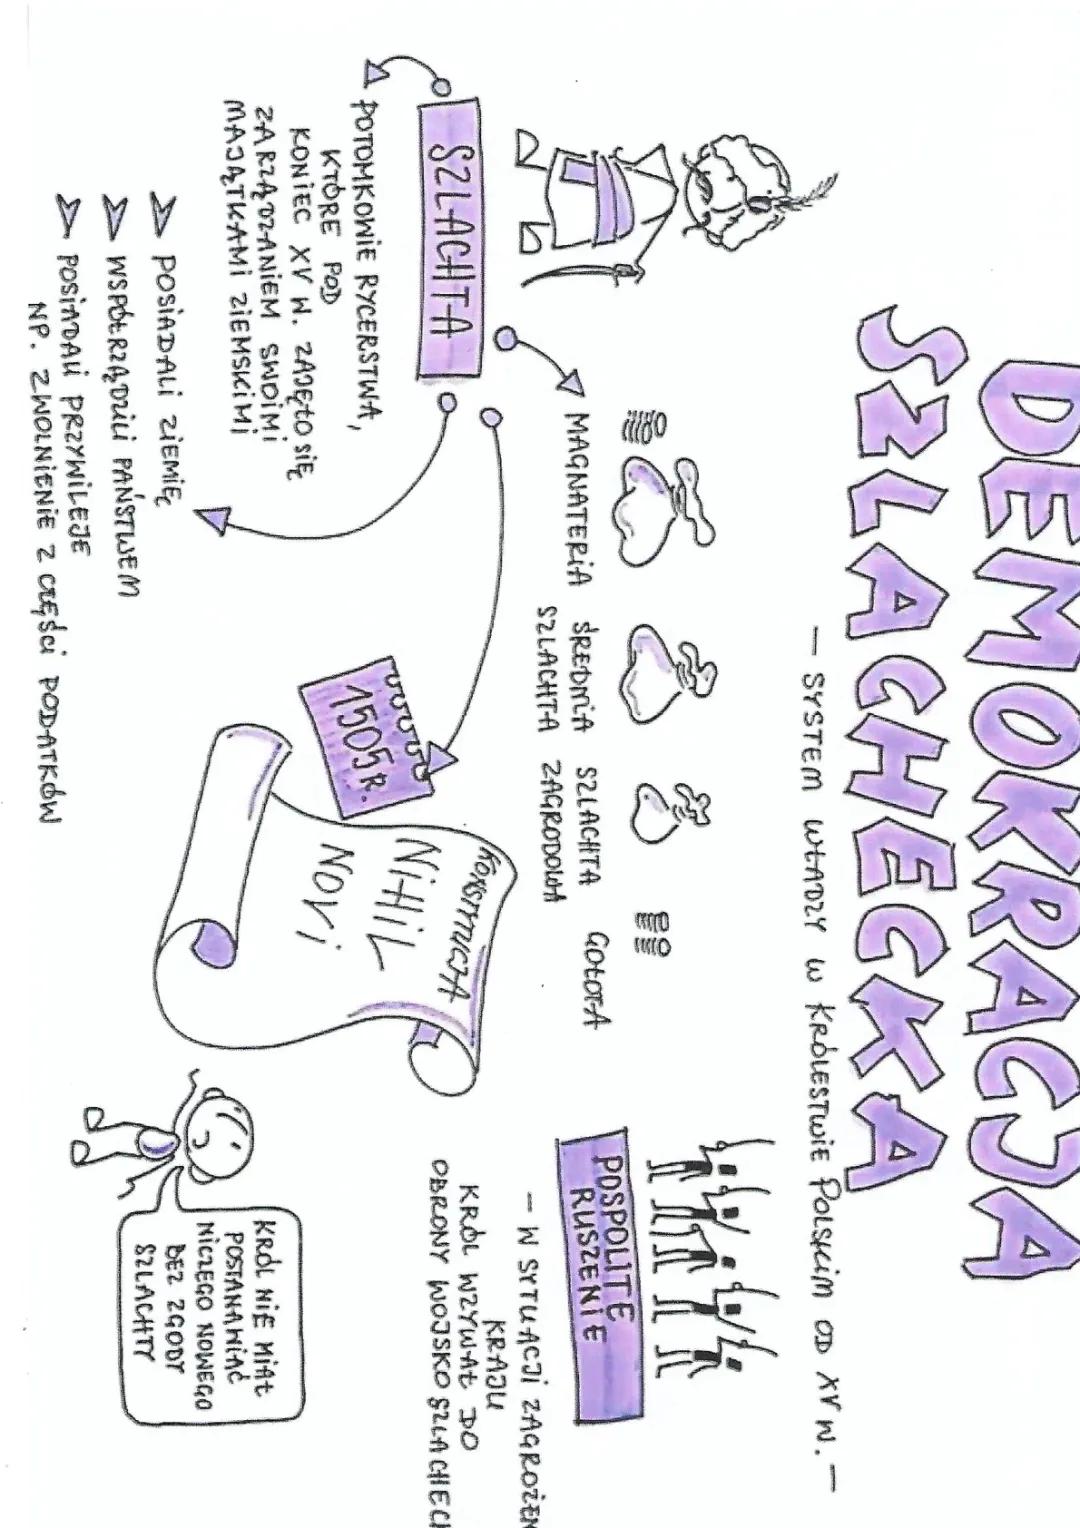 DEMOKRACJA
SZLACHECKA
– SYSTEM WŁADZY W KRÓLESTWIE POLSKIM OD XV W. –
SZLACHTA
POTOMKOWIE RYCERSTWA,
KTÓRE POD
KONIEC XV W. ZAJĘŁO SIĘ
ZARZĄDZANIEM SWOIMI
MAJĄTKAMI ZIEMSKIMI
MAGNATERIA
ŚREDNIA
SZLACHTA
SZLACHTA
ZAGRODOWA
GOŁOTA
POSIADALI ZIEMIĘ
WSPÓŁRZĄDZILI PAŃSTWEM
POSIADALI PRZYWILEJE
NP. ZWOLNIENIE Z CZĘŚCI PODATKÓW
1505 R.
KONSTYTUCJA
NIHIL
NOVI
KRÓL NIE MIAŁ
POSTANAWIAĆ
NICZEGO NOWEGO
BEZ ZGODY
SZLACHTY
POSPOLITE
RUSZENIE
– W SYTUACJI ZAGROŻEN
KRAJU
KRÓL WZYWAŁ DO
OBRONY WOJSKO SZLACHECK